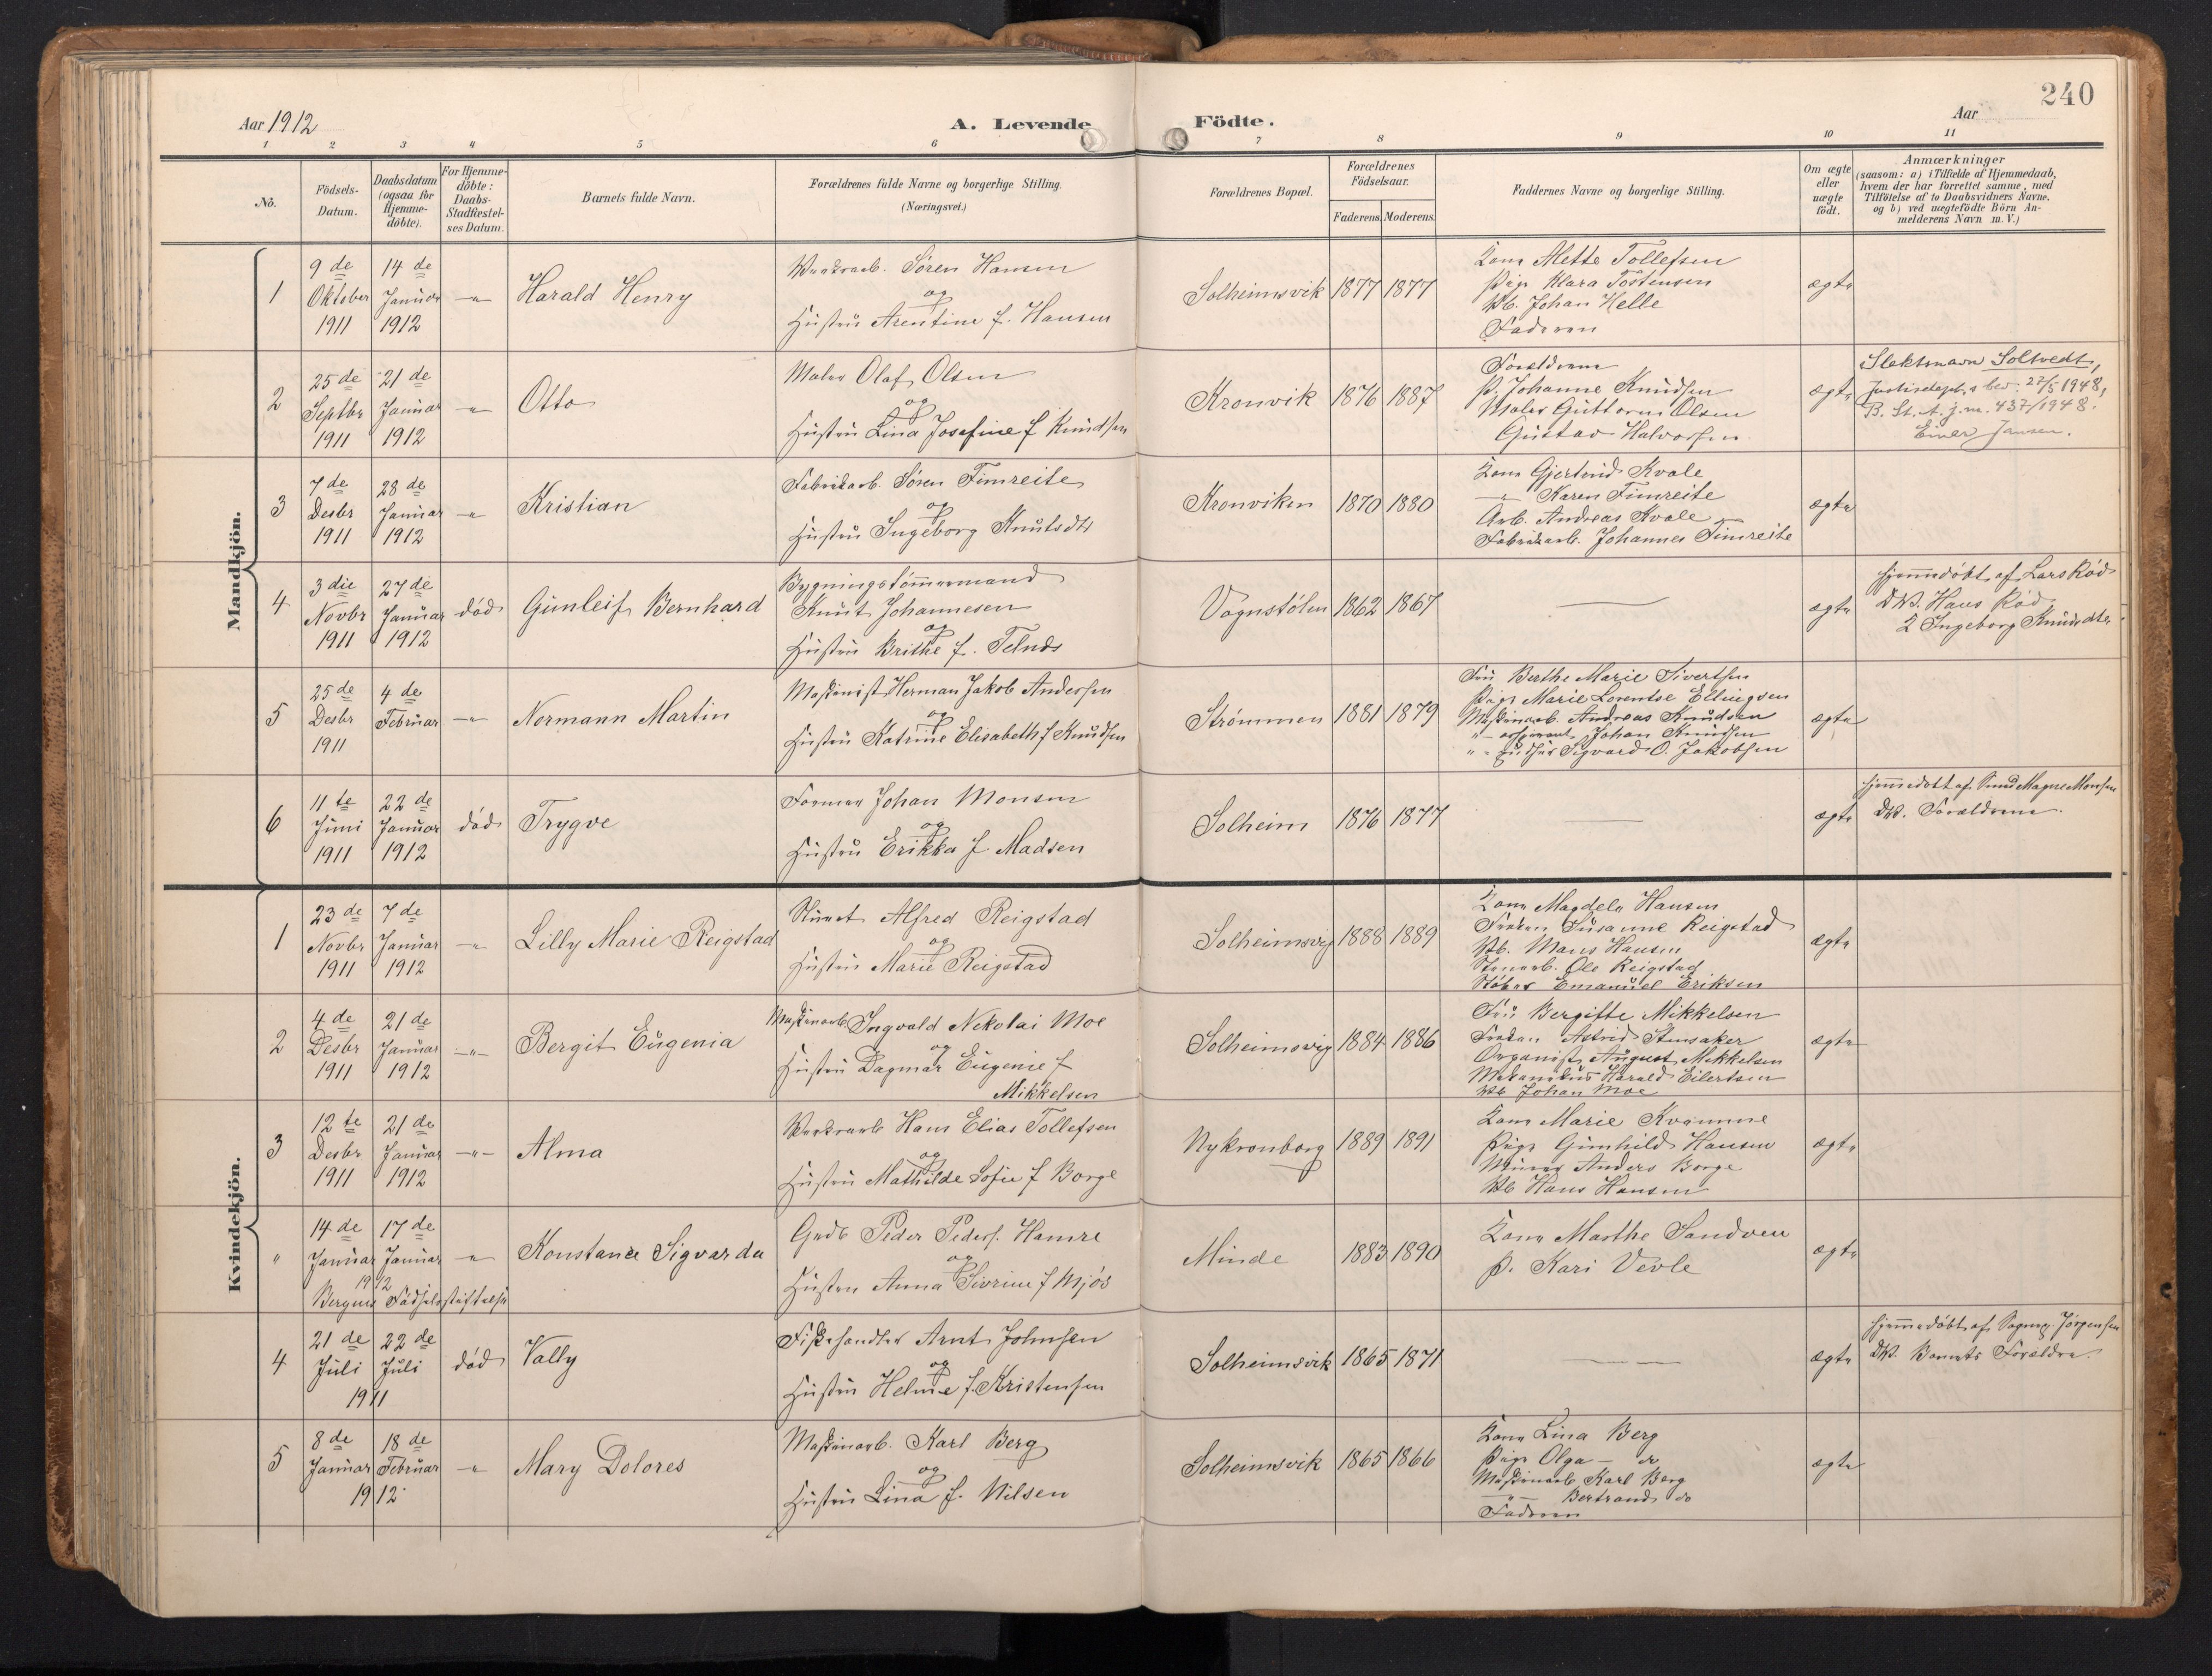 240
Aar 1912
A. Levende Födte.
Aar
1 2 3 4 5 6 7 8 9 10 11
Nö.
Födsels-Datum.
Daabsdatum (ogsaa for Hjemme-döbte).
For Hjemme-döbte: Daabs-Stadfæstel-ses Datum.
Barnets fulde Navn.
Forældrenes fulde Navne og borgerlige Stilling. (Næringsvei.)
Forældrenes Bopæl.
Forældrenes Födselsaar.
Faderens. Moderens.
Faddernes Navne og borgerlige Stilling.
Om ægte eller uægte födt.
Anmærkninger
(saasom: a) i Tilfælde af Hjemmedaab, hvem der har forrettet samme, med Tilföielse af to Daabsvidners Navne. og b) ved uægtefödte Börn An-melderens Navn m. V.)
Mandkjön.
1
9de Oktober 1911
14de Januar 1912
-"-
Harald Henry
Søren Hansen
og
Hustru Arentine f. Hansen
Solheimsvik 1877 1877
Kone Mette Tollefsen
Pige Klara Tostensen
Vb. Johan Helle
Faderen
ægte
2
25de Septbr 1911
21de Januar 1912
-"-
Otto
Maler Olaf Olsen
og
Hustru Lina Josefine f Knudsen
Kronvik 1876 1887
Forældrene
P. Johanne Knudsen
Maler Guttorm Olsen
Gustav Halvorsen
ægte
Slektsnavn Soltvedt,
Justisdept.s bev. 22/5 1948,
B. St. A. j.nr. 437/1948.
Einer Jansen.
3
7de Desbr 1911
28de Januar 1912
-"-
Kristian
Fabrikarb. Søren Fimreite
og
Hustru Ingeborg Knutsdtr
Kronviken 1870 1880
Kone Gjertrud Kvale
-"- Karen Fimreite
Arb. Andreas Kvale
Fabrikarb. Johannes Fimreite
ægte
4
3die Novbr 1911
27de Januar 1912
død
Gunleif Bernhard
Bygningstømmermand
Knut Johannesen
og
Hustru Brithe f.
Vognstølen 1862 1867
ægte
hjemmedøbt af Lars Rød
DV. Hans Rød
Ingeborg Knudsdtr
5
25de Desbr 1911
4de Februar
-"-
Normann Martin
Maskinist Herman Jakob Andersen
og
Hustru Katrine Elisabeth f Knudsen
Strømmen 1881 1879
Fru Berthe Marie Sivertsen
Pige Marie Lorentse Ellingsen
Maskinarb. Andreas Knudsen
"- aspirant Johan Knudsen
Sigvard O. Jakobsen
ægte
6
11te Juni 1911
22de Januar 1912
død
Trygve
Former Johan Monsen
og
Hustru Erikka f. Madsen
Solheim 1876 1877
ægte
hjemmedøbt af Magne Monsen
DV. Forældrene.
Kvindekjön.
1
23de Novbr 1911
7de Januar 1912
-"-
Lilly Marie Reigstad
Alfred Reigstad
og
Hustru Marie Reigstad
Solheimsvig 1888 1889
Kone Magdele Hansen
Frøken Susanne Reigstad
Vb. Mons Hansen
Stenarb. Ole Reigstad
Støber Emanuel Eriksen
ægte
2
4de Desbr 1911
21de Januar 1912
-"-
Bergit Eugenia
Maskinarb Ingvald Nikolai Moe
og
Hustru Dagmar Eugenie f
Mikkelsen
Solheimsvig 1884 1886
Fru Bergitte Mikkelsen
Frøken Astrid Stensaker
Organist August Mikkelsen
Mekanikus Harald Eilertsen
Vb Johan Moe
ægte
3
12te Desbr 1911
21de Januar 1912
-"-
Alma
Hans Elias Tollefsen
og
Hustru Mathilde Sofie f Borge
Nykronborg 1889 1891
Kone Marie Kvamme
Pige Gunhild Hansen
Murer Anders Borge
Vb Hans Hansen
ægte
"
14de Januar 1912
17de Januar
-"-
Bergens Fødselsstiftelse
Konstanze Sigvarda
Gndb Peder Peders. Hamre
og
Hustru Anna Sivrine f Mjøs
Minde 1883 1890
Kone Marthe Sandven
P. Kari Vevle
ægte
4
21de Juli
22de Juli
1911
død
Vally
Fiskehandler Arnt Johnsen
og
Hustru Helene f. Kristensen
Solheimsvik 1865 1871
ægte
hjemmedøbt af Sognep. Jørgensen
DV. Barnets Forældre.
5
8de Januar
18de Februar
1912
-"-
Mary Dolores
Maskinarb. Karl Berg
og
Hustru Lina f. Nilsen
Solheimsvik 1865 1866
Kone Lina Berg
Pige Olga - do
Maskinarb Karl Berg
-"- Bertrand do
Faderen
ægte